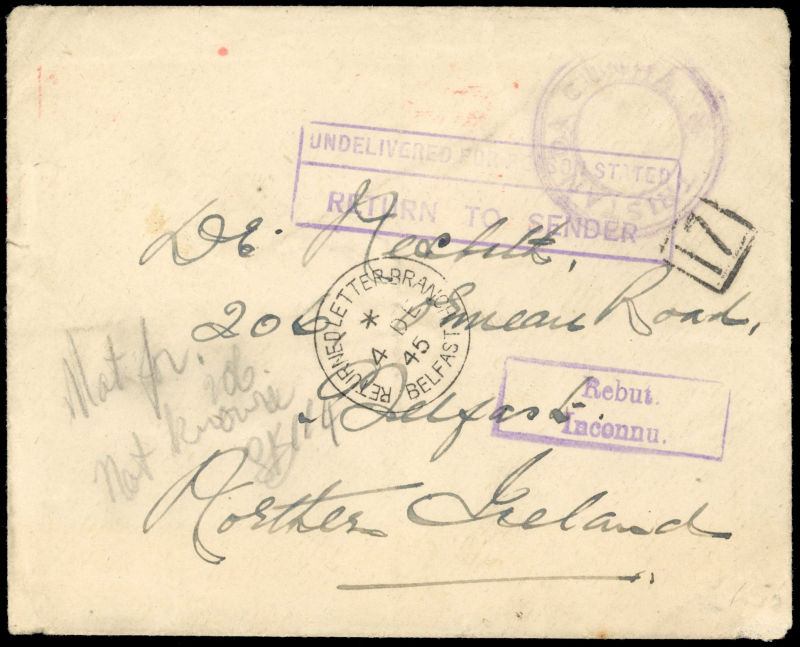 TRISTAN DA CUNHA
UNDELIVERED FOR REASON STATED
RETURN TO SENDER
17
Dr.
206 Road,
Belfast.
Northern Ireland
RETURNED LETTER BRANCH
* 4 DE 45
BELFAST
Rebut.
Inconnu.
Not for 206.
Not known